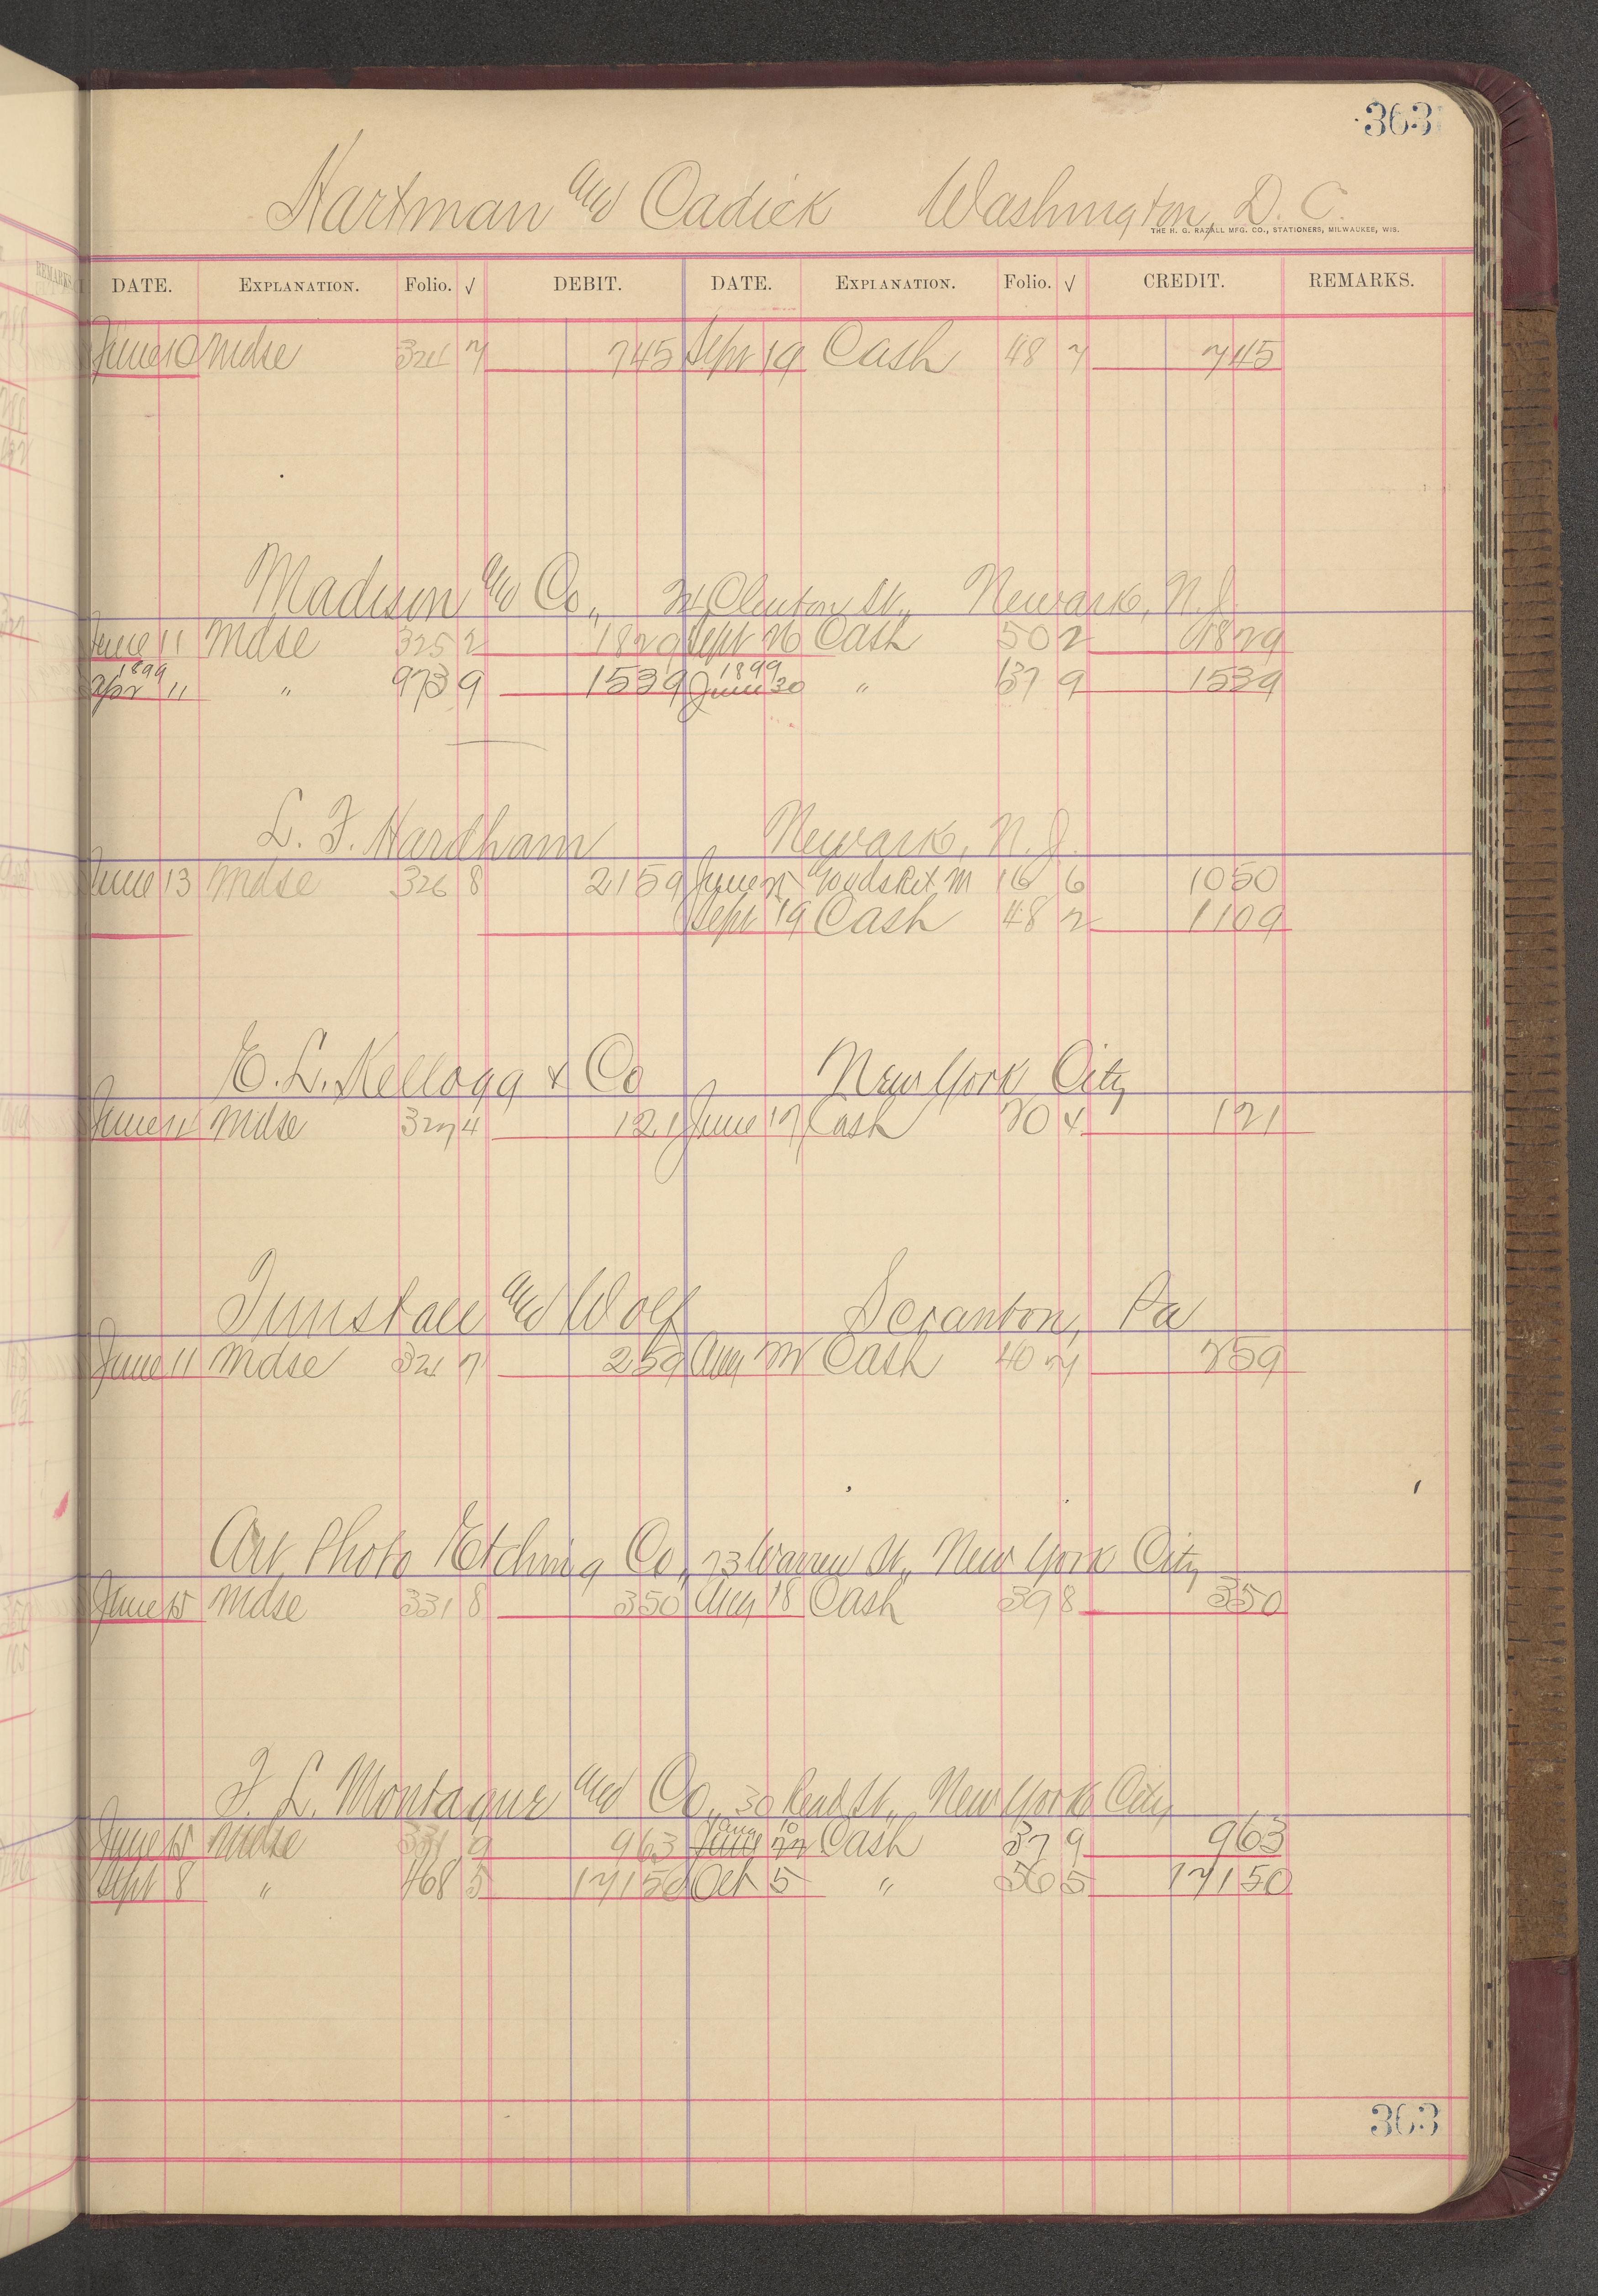 363
Hartman and Cadick Washington, D. C.
THE H. G. RAZALL MFG. CO., STATIONERS, MILWAUKEE, WIS.
DATE. EXPLANATION. Folio. √ DEBIT. DATE. EXPLANATION. Folio. √ CREDIT. REMARKS.
June 10 Mdse 321 7 745 Sept 19 Cash 48 7 745
Madison and Co., Clinton St., Newark, N. J.
June 11 Mdse 325 2 1829 Sept 26 Cash 50 2 1829
1899 1899
Apr 11 " 973 9 1539 June 30 " 137 9 1539
L. F. Hardham Newark, N. J.
June 13 Mdse 326 8 2159 June Goods Ret M 16 6 1050
Sept 19 Cash 48 2 1109
E. L. Kellogg & Co New York City
June 11 Mdse 327 4 121 June 17 Cash 20 4 121
Tunstall and Wolf Scranton, Pa
June 11 Mdse 321 7 259 Aug Cash 40 7 259
Art Photo Etching Co., 73 Warren St., New York City
June 15 Mdse 331 8 350 Aug 18 Cash 39 8 350
F. L. Montague and Co., 30 Read St., New York City
Aug 10
June 15 Mdse 331 9 963 June 22 Cash 37 9 963
Sept 8 " 468 5 17150 Oct 5 " 56 5 17150
363